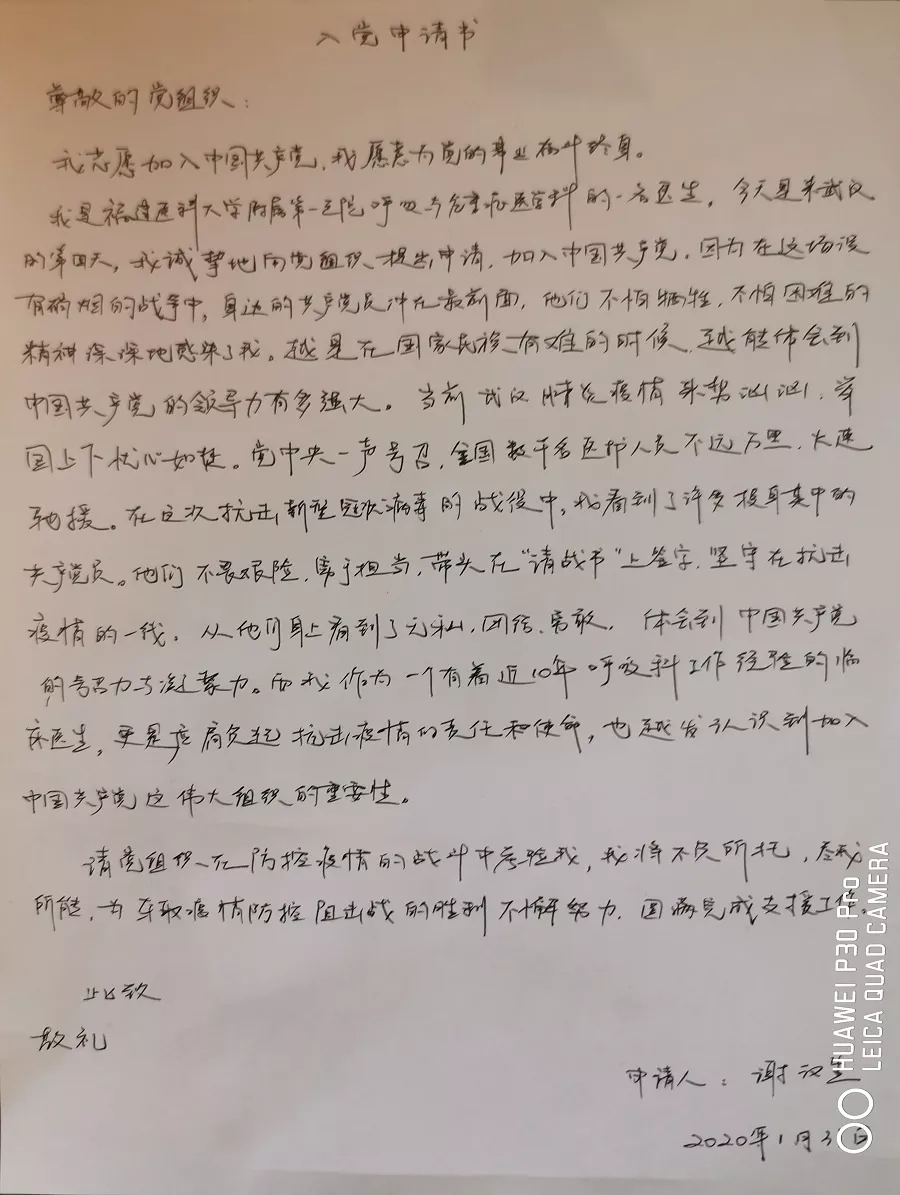 入党申请书
尊敬的党组织：
我志愿加入中国共产党，我愿意为党的事业奋斗终身。
我是福建医科大学附属第一医院呼吸与危重症医学科的一名医生，今天是来武汉
的第四天，我诚挚地向党组织提出申请，加入中国共产党，因为在这场没
有硝烟的战争中，身边的共产党员冲在最前面，他们不怕牺牲，不怕困难的
精神深深地感染了我。越是在国家民族有难的时候，越能体会到
中国共产党的领导力有多强大。当前武汉肺炎疫情来势汹汹，举
国上下忧心如焚。党中央一声号召，全国数千名医护人员不远万里，火速
驰援。在这次抗击新型冠状病毒的战役中，我看到了许多投身其中的
共产党员。他们不畏艰险，勇于担当，带头在“请战书”上签字，坚守在抗击
疫情的一线。从他们身上看到了无私，团结，勇敢，体会到中国共产党
的号召力与凝聚力。而我作为一个有着近10年呼吸科工作经验的临
床医生，更是应肩负起抗击疫情的责任和使命，也越发认识到加入
中国共产党这伟大组织的重要性。
请党组织在防控疫情的战斗中考验我，我将不负所托，尽我
所能，为夺取疫情防控阻击战的胜利不懈努力，圆满完成支援工作。
此致
敬礼
申请人：谢汉生
2020年1月3日
HUAWEI P30 Pro
LEICA QUAD CAMERA